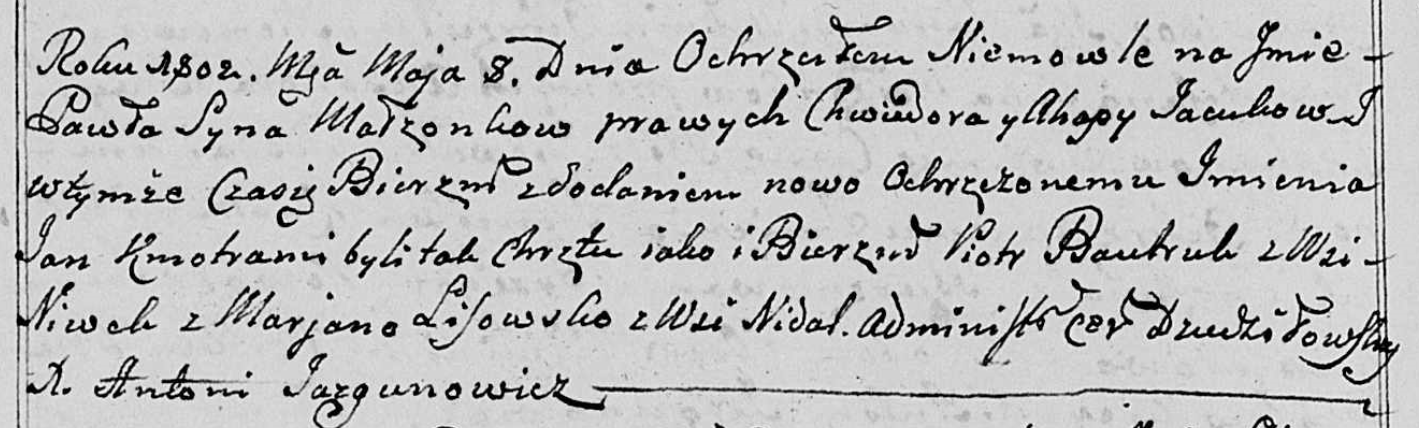 Roku 1802. Mją Maja 8. Dnia Ochrzciłem Niemowle na Jmie -
Pawła Syna Małżonkow prawych Chwiedora y Ahapy Jacukow. J
wtymże Czasię Bierzm̃ zdodaniem nowo Ochrzczonemu Jmienia
Jan Kmotrami byli tak Chrztu iako i Bierzm̃ Piotr Bautruk z Wsi -
Niwek z Marjano Lisowsko z Wsi Nidal. Administr̃ Cer̃ Dziedziłowsky
X. Antoni Jazgunowicz